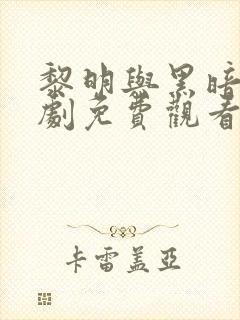 黎明與黑暗
劇免費觀看
卡雷盖亞